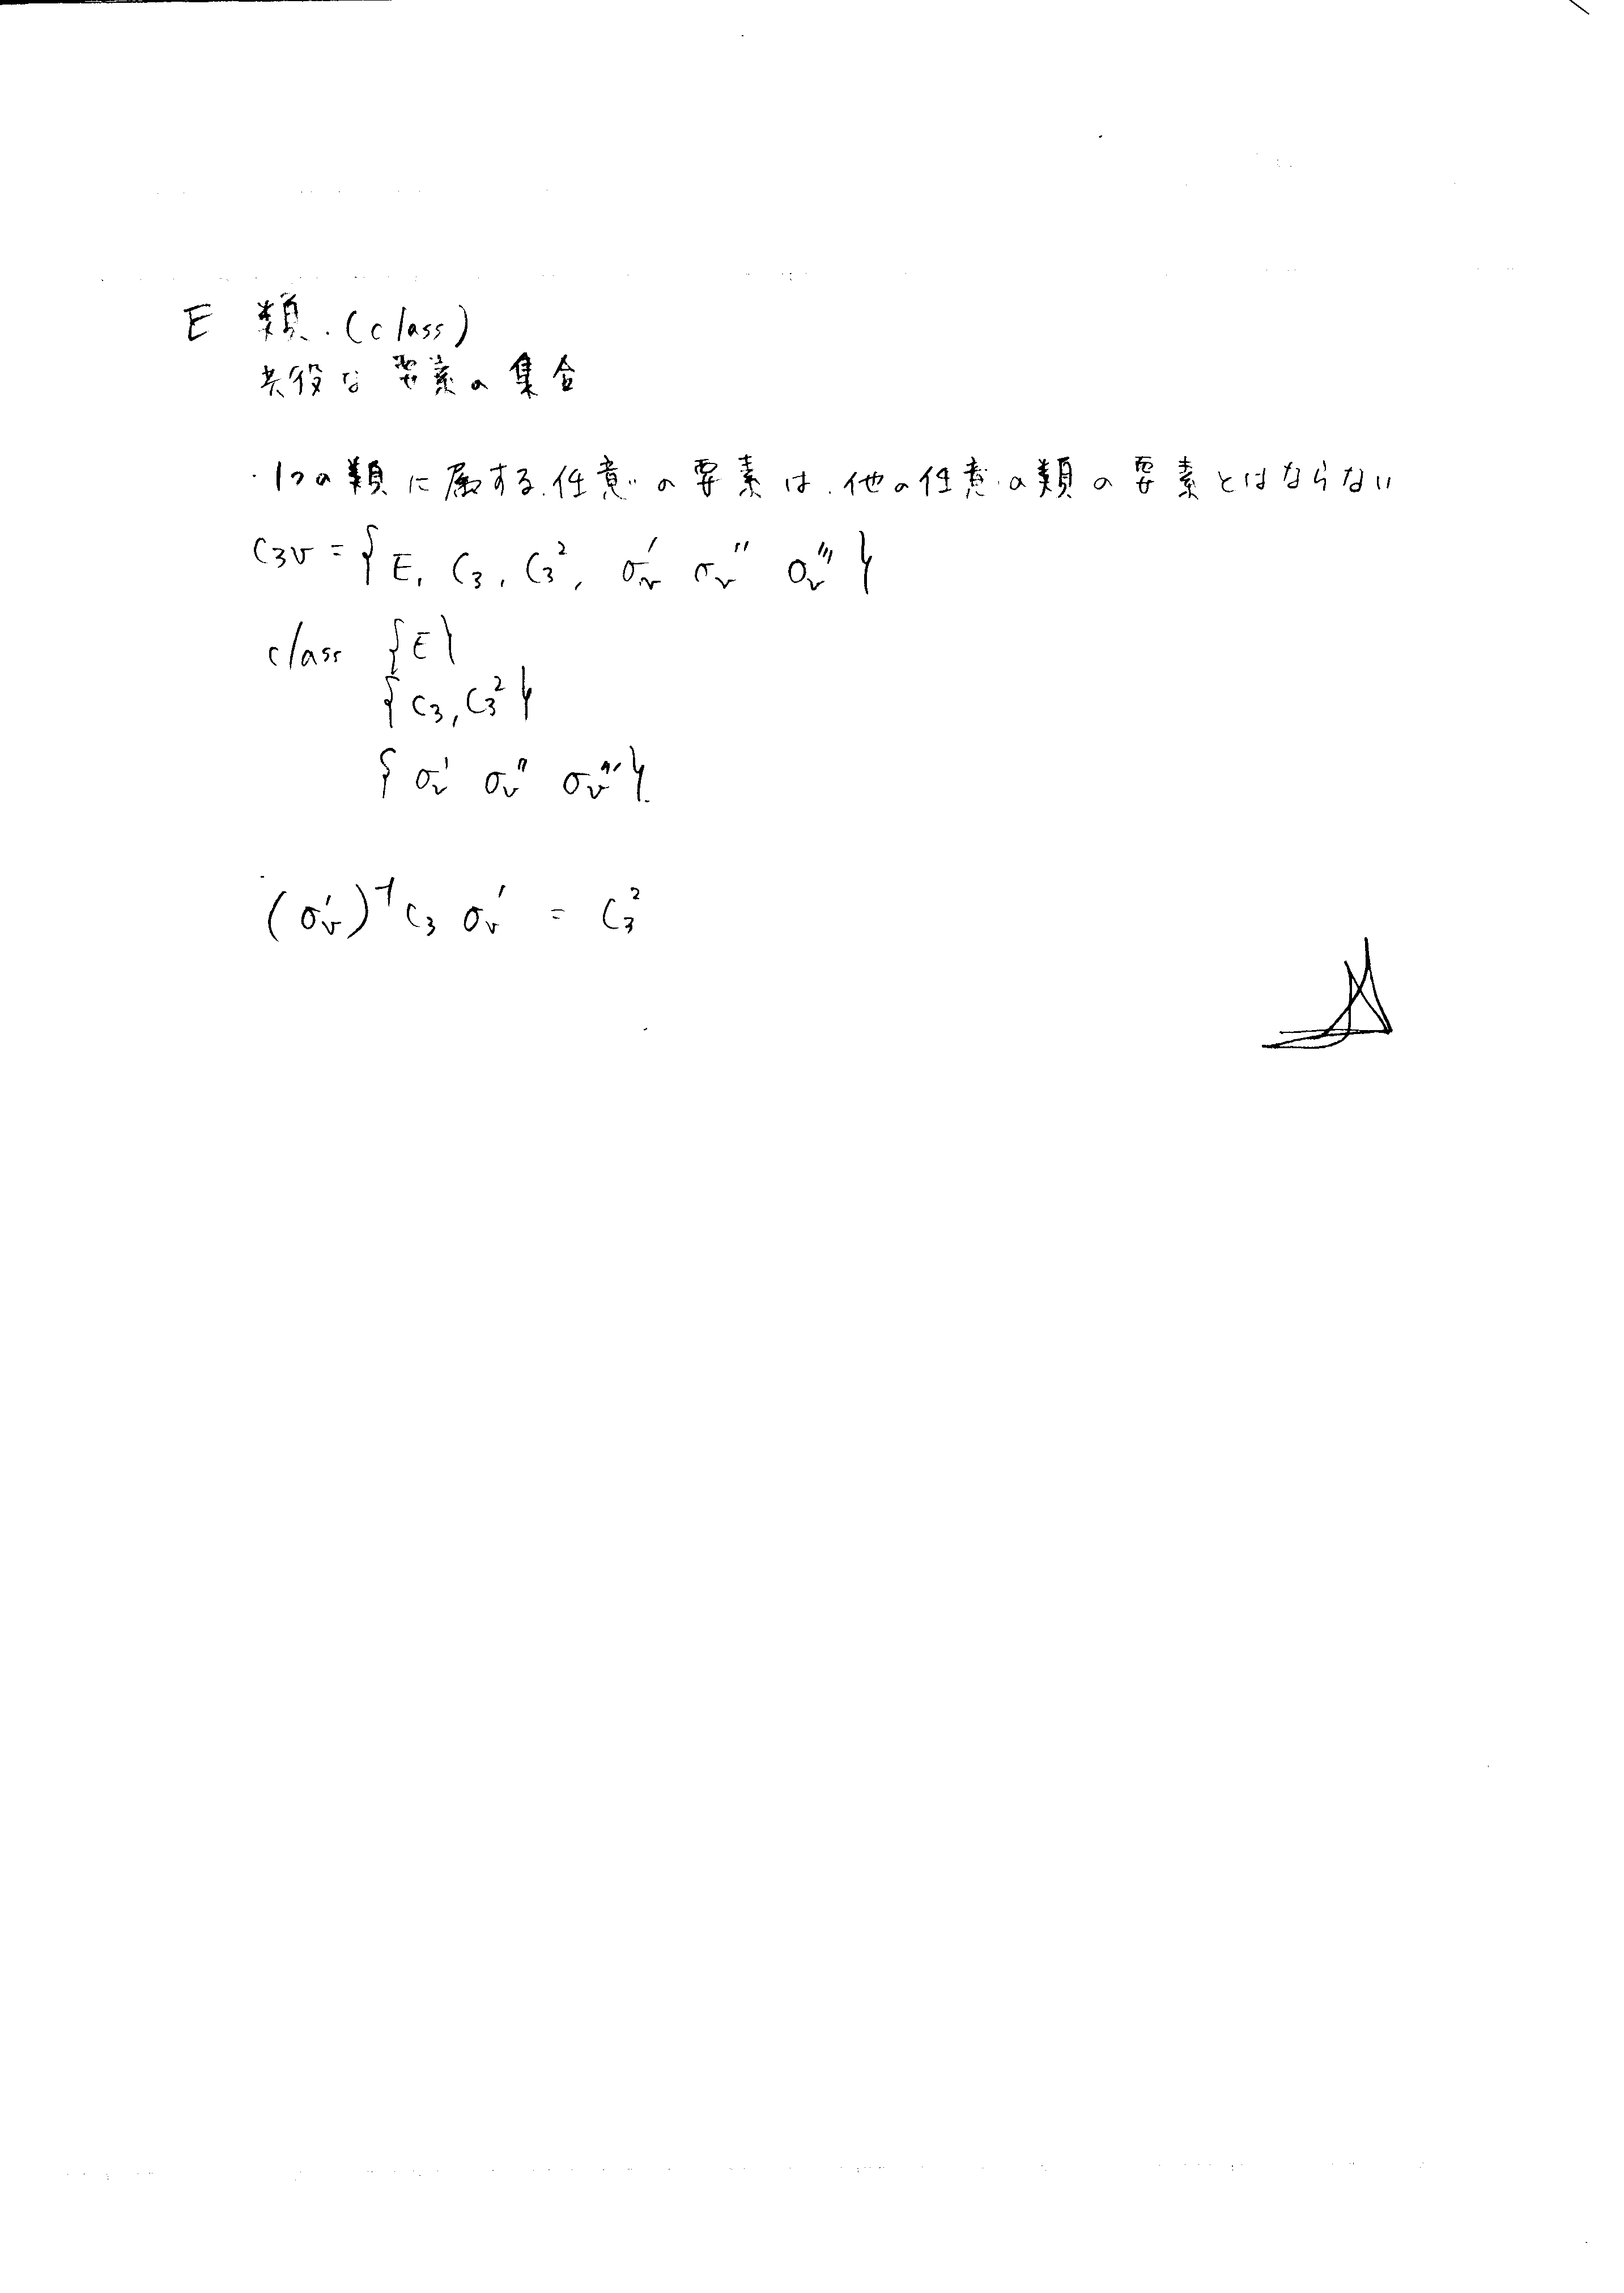 E 類.(class)
共役な要素の集合
・1つの類に属する任意の要素は、他の任意の類の要素とはならない
C₃v = { E, C₃, C₃², σv′ σv″ σv‴ }
class {E}
{C₃, C₃²}
{σv′ σv″ σv‴}
(σv′)⁻¹ C₃ σv′ = C₃²